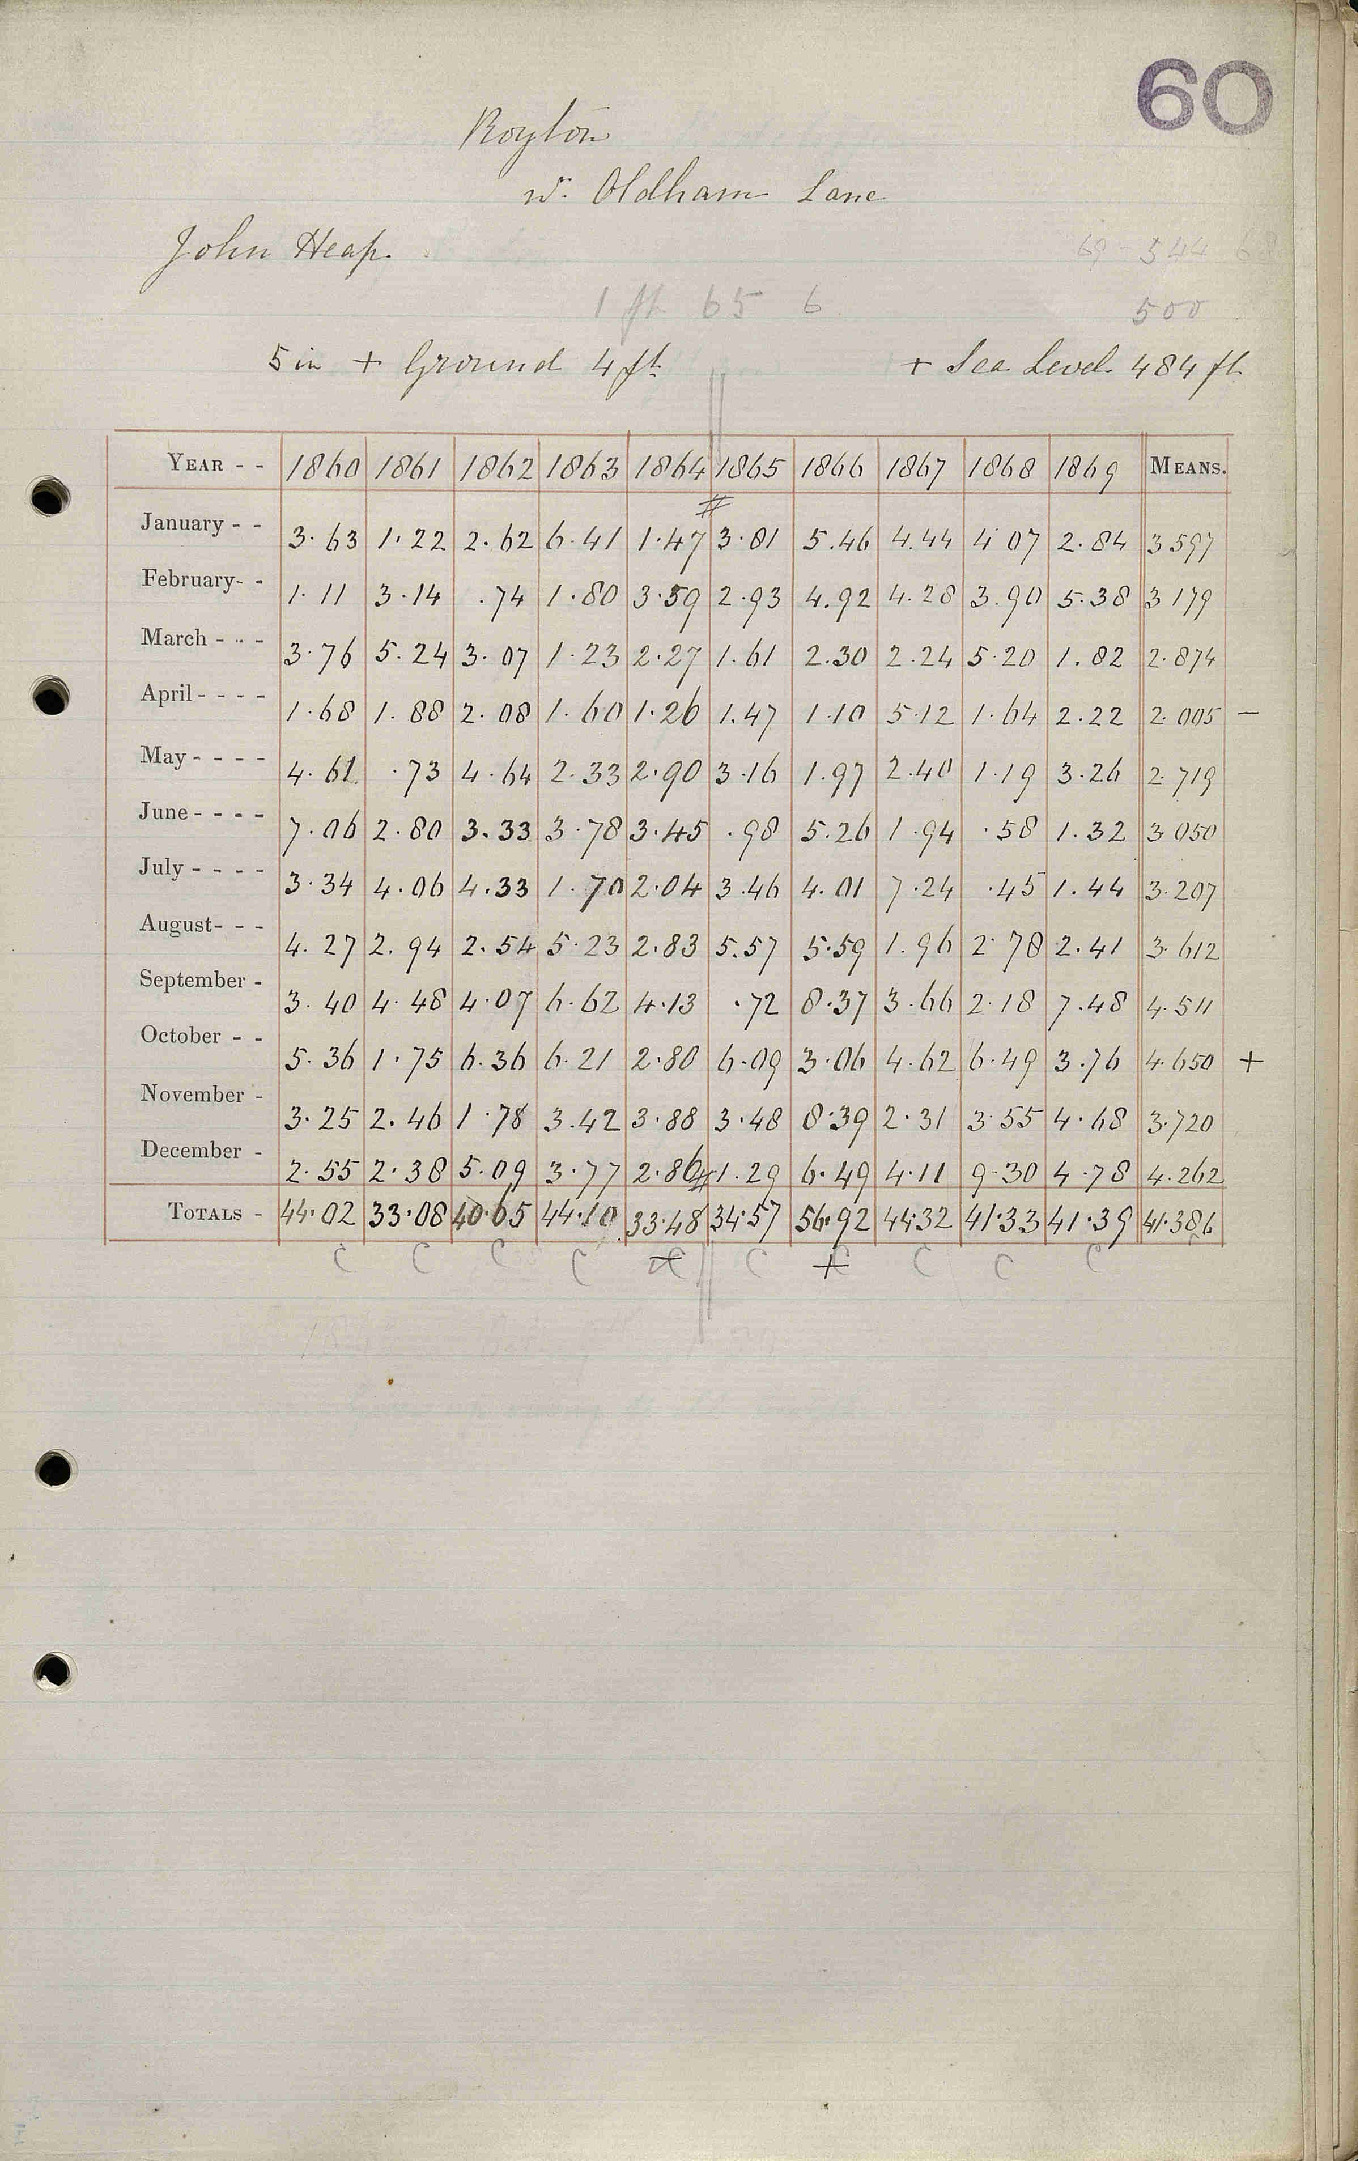 60
Royton
w. Oldham Lane
John Heap.
69 - 544 68
1 ft 65 6 500
5 in + Ground 4 ft + Sea Level 484 ft
YEAR - - 1860 1861 1862 1863 1864 1865 1866 1867 1868 1869 MEANS.
January - - 3.63 1.22 2.62 6.41 1.47 3.81 5.46 4.44 4.07 2.84 3.597
February- - 1.11 3.14 .74 1.80 3.59 2.93 4.92 4.28 3.90 5.38 3.179
March - - - 3.76 5.24 3.07 1.23 2.27 1.61 2.30 2.24 5.20 1.82 2.874
April - - - - 1.68 1.88 2.08 1.60 1.26 1.47 1.10 5.12 1.64 2.22 2.005 —
May - - - - 4.61 .73 4.64 2.33 2.90 3.16 1.97 2.40 1.19 3.26 2.719
June - - - - 7.06 2.80 3.33 3.78 3.45 .98 5.26 1.94 .58 1.32 3.050
July - - - - 3.34 4.06 4.33 1.70 2.04 3.46 4.01 7.24 .45 1.44 3.207
August- - - 4.27 2.94 2.54 5.23 2.83 5.57 5.59 1.96 2.78 2.41 3.612
September - 3.40 4.48 4.07 6.62 4.13 .72 8.37 3.66 2.18 7.48 4.511
October - - 5.36 1.75 6.36 6.21 2.80 6.09 3.06 4.62 6.49 3.76 4.650 +
November - 3.25 2.46 1.78 3.42 3.88 3.48 8.39 2.31 3.55 4.68 3.720
December - 2.55 2.38 5.09 3.77 2.86 1.29 6.49 4.11 9.30 4.78 4.262
TOTALS - 44.02 33.08 40.65 44.10 33.48 34.57 56.92 44.32 41.33 41.39 41.386
C C C C C C C C C C